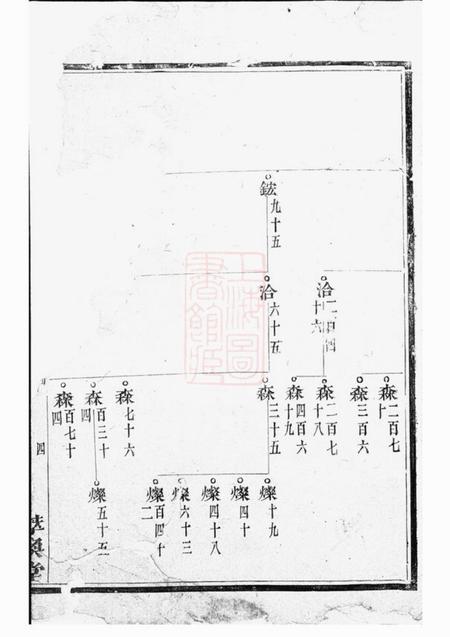 鋐九十五
洽二百四十六
洽六十五
森二百七十
森三百六
森二百七十八
森四百六十九
森三十五
森七十六
森百三十四
森百七十四
燦十九
燦四十
燦四十八
燦六十三
燦百四十二
燦五十五
四
上海圖書館藏